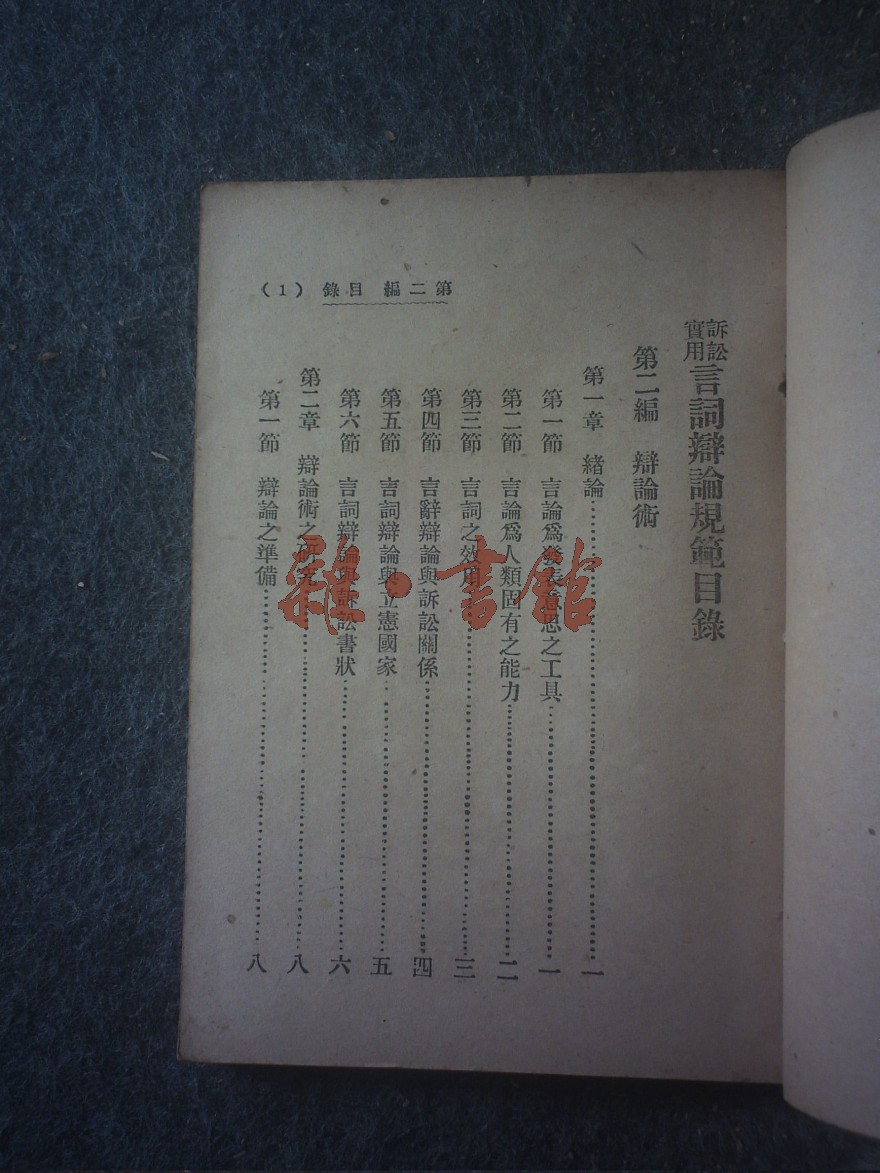 訴訟實用言詞辯論規範目錄
第二編　辯論術
第一章　緒論…………一
第一節　言論爲發表意思之工具…………一
第二節　言論爲人類固有之能力…………二
第三節　言詞之效用…………三
第四節　言辭辯論與訴訟關係…………四
第五節　言詞辯論與立憲國家…………五
第六節　言詞辯論與訴訟書狀…………六
第二章　辯論術之研究…………八
第一節　辯論之準備…………八
第二編　目錄　（1）
雜·書館